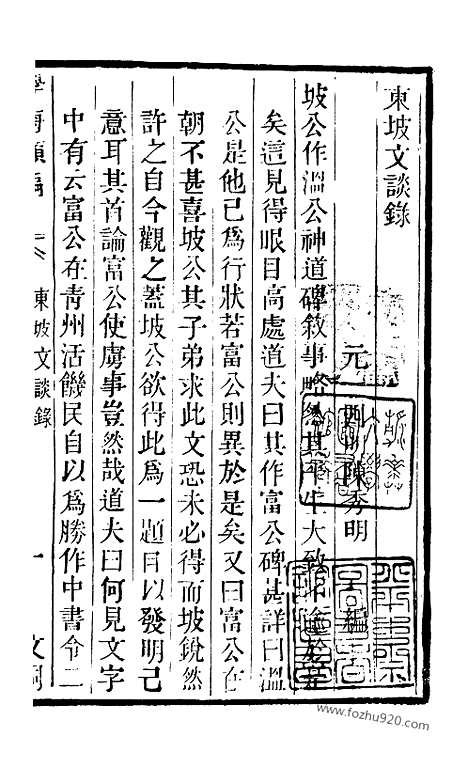 東坡文談錄
元 四明陳秀明 編
坡公作溫公神道碑敘事略然其平生大致不踰於是
矣這見得眼目高處道夫曰其作富公碑甚詳曰溫
公是他已爲行狀若富公則異於是矣又曰富公在
朝不甚喜坡公其子弟求此文恐未必得而坡銳然
許之自今觀之蓋坡公欲得此爲一題目以發明己
意耳其首論富公使虜事豈然哉道夫曰何見文字
中有云富公在青州活饑民自以爲勝作中書令二
學海類編 東坡文談錄 一
www.fozhu920.com